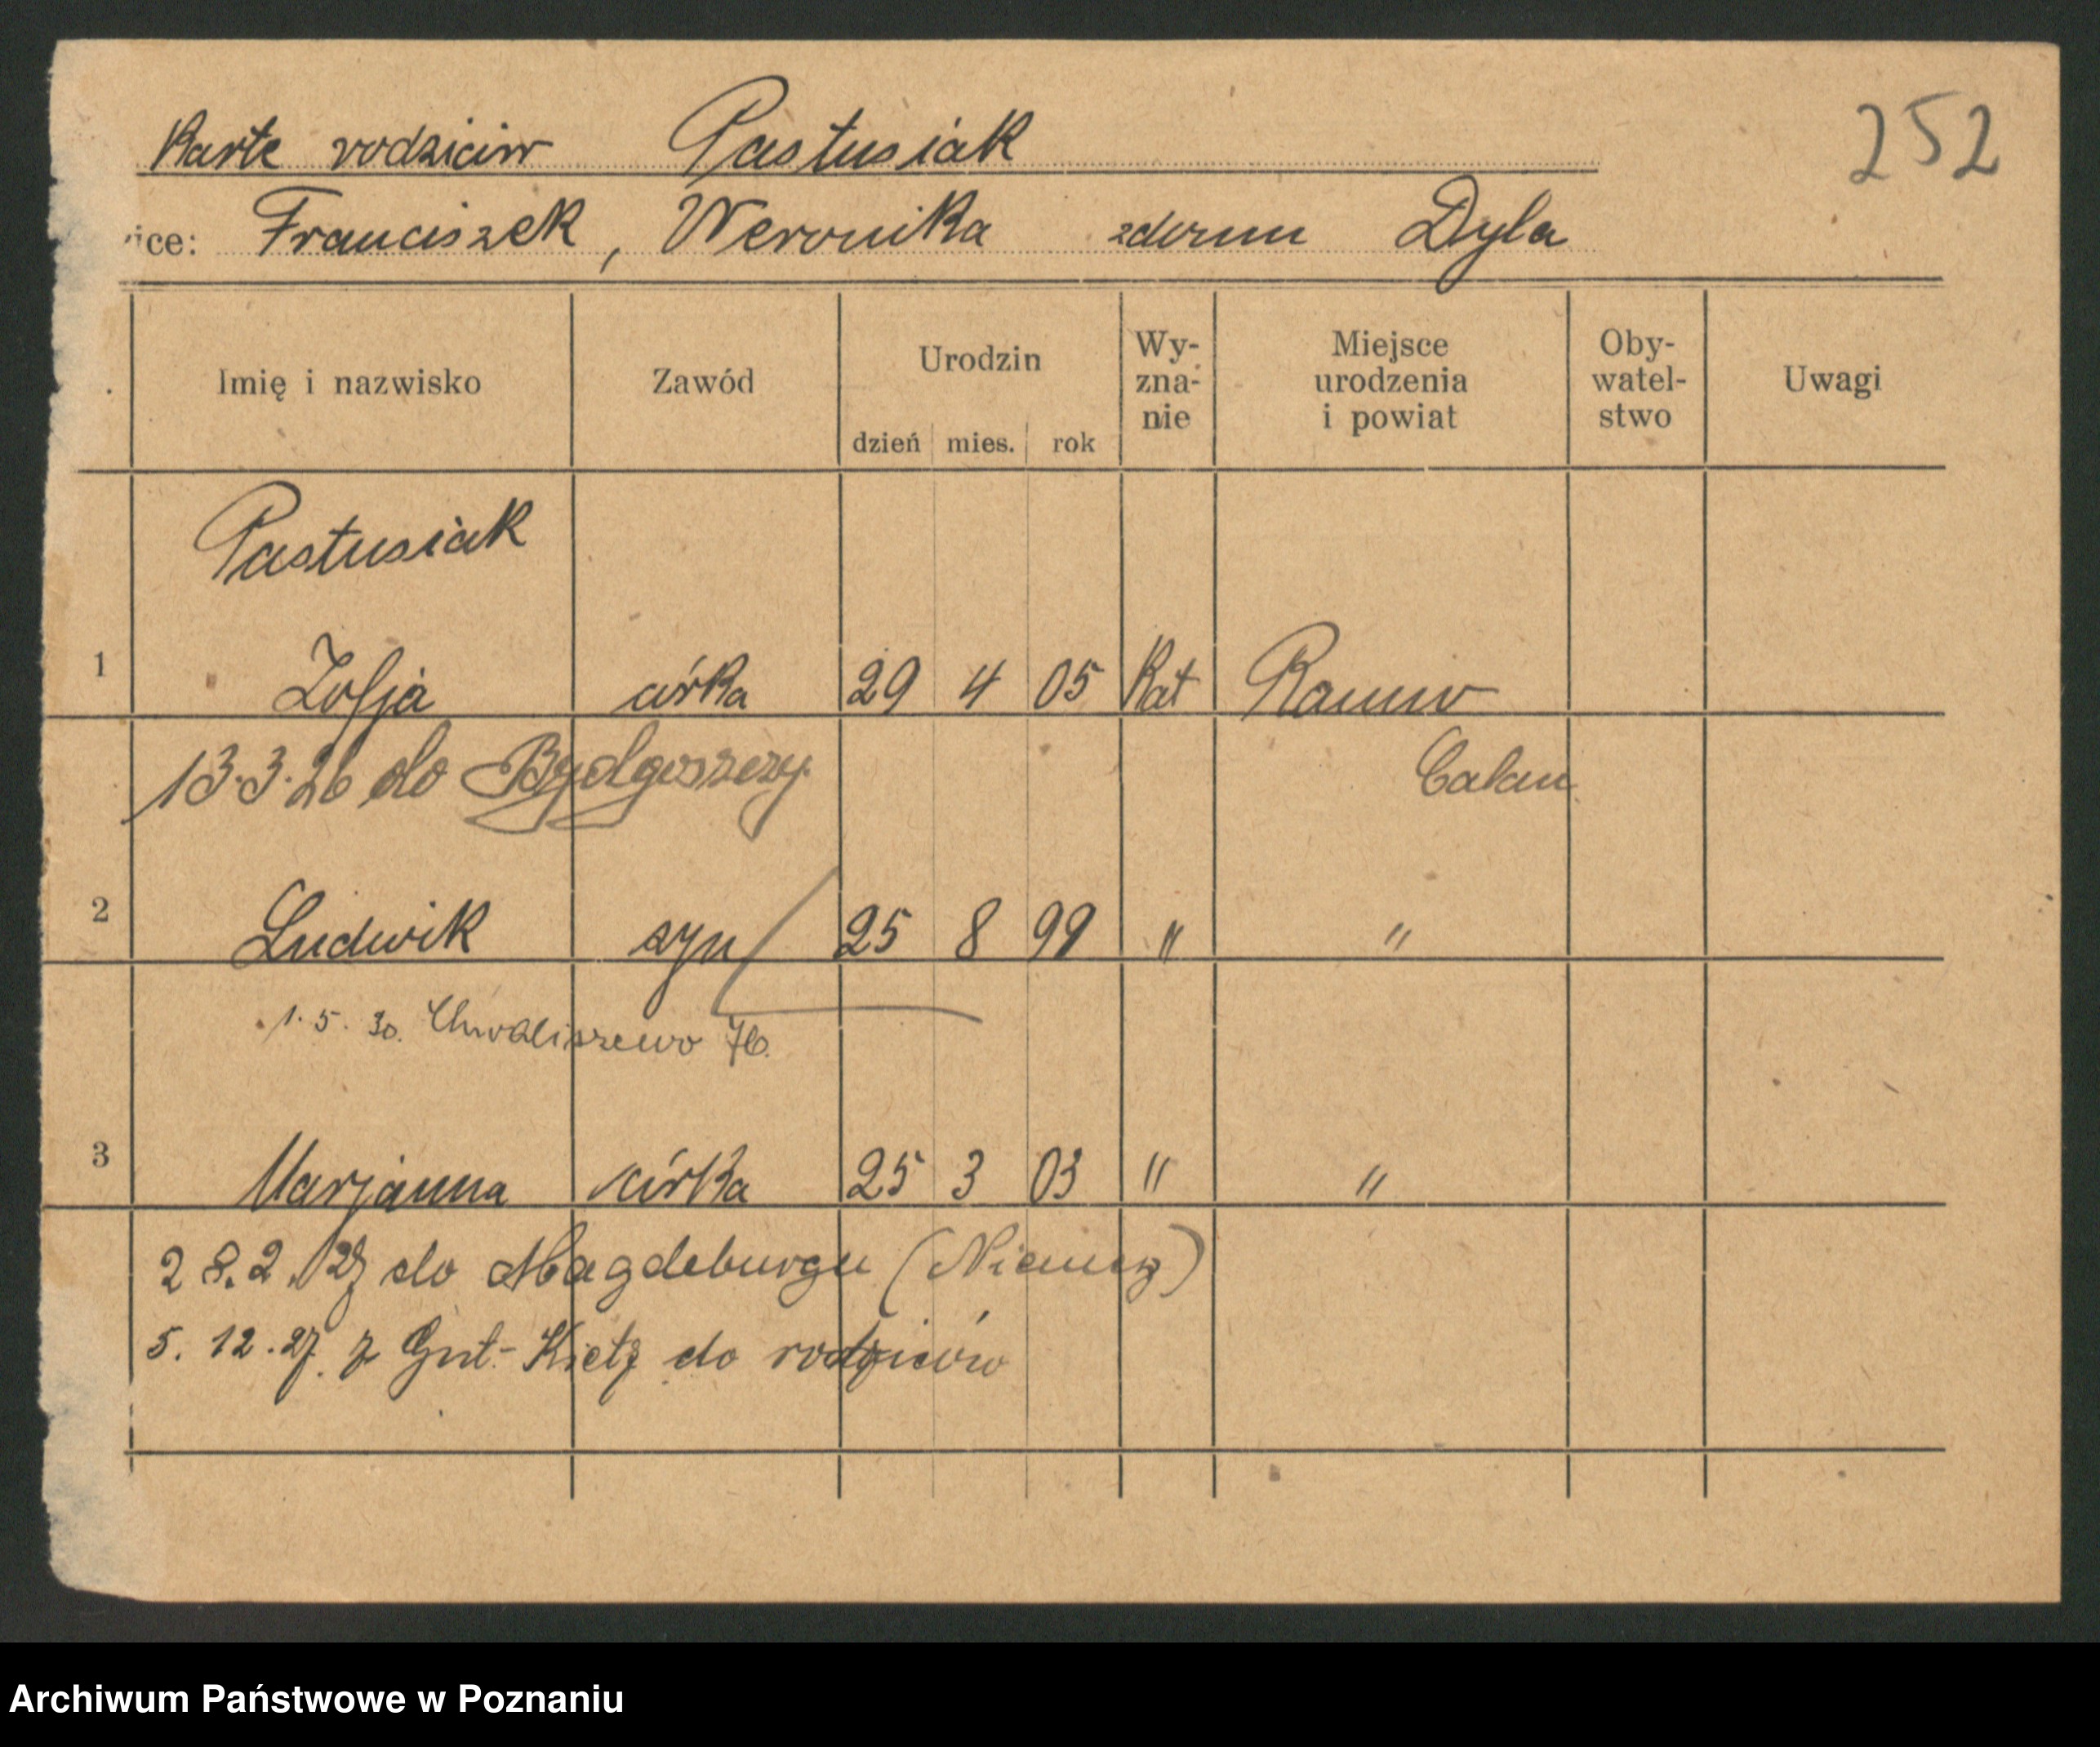 252
Karte rodziców Pastusiak
ice: Franciszek, Weronika zdomu Dyla
Imię i nazwisko Zawód Urodzin dzień mies. rok Wy-zna-nie Miejsce urodzenia i powiat Oby-watel-stwo Uwagi
Pastusiak
1 Zofja córka 29 4 05 Kat
13.3.26 do Bydgoszczy.
2 Ludwik syn 25 8 99 " "
1.5.30. Chwaliszewo 76.
3 Marjanna córka 25 3 03 " "
28.2.27 do Magdeburgu (Niemcy)
5.12.27. z Gut-Kietz do rodziców
Archiwum Państwowe w Poznaniu